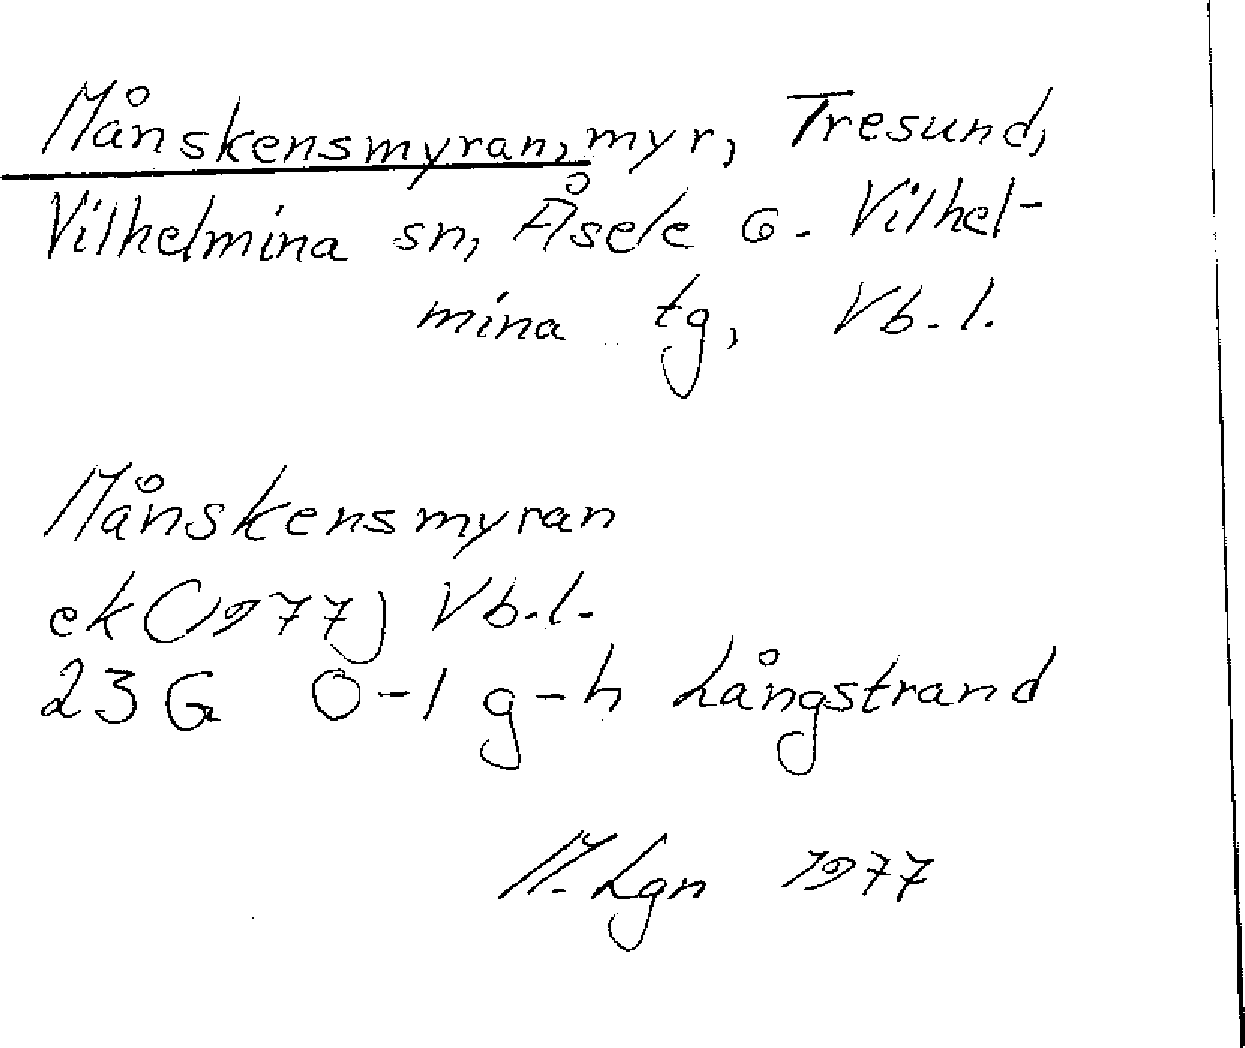 Månskensmyran, myr, Tresund,
Vilhelmina sn, Åsele o. Vilhel-
mina tg, Vb.l.
Månskensmyran
ek (1977) Vb.l.
23 G 0-1 g-h Långstrand
M. Lgn 1977